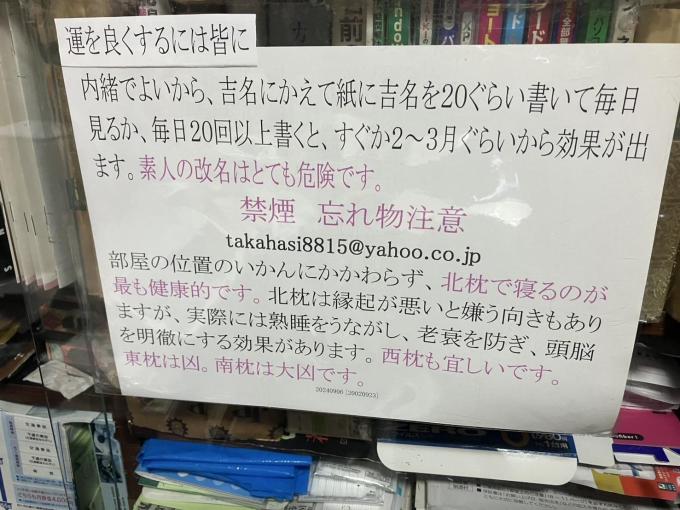 運を良くするには皆に
内緒でよいから、吉名にかえて紙に吉名を20ぐらい書いて毎日
見るか、毎日20回以上書くと、すぐか2～3月ぐらいから効果が出
ます。素人の改名はとても危険です。
禁煙 忘れ物注意
takahasi8815@yahoo.co.jp
部屋の位置のいかんにかかわらず、北枕で寝るのが
最も健康的です。北枕は縁起が悪いと嫌う向きもあり
ますが、実際には熟睡をうながし、老衰を防ぎ、頭脳
を明徹にする効果があります。西枕も宜しいです。
東枕は凶。南枕は大凶です。
20240906 [39020923]